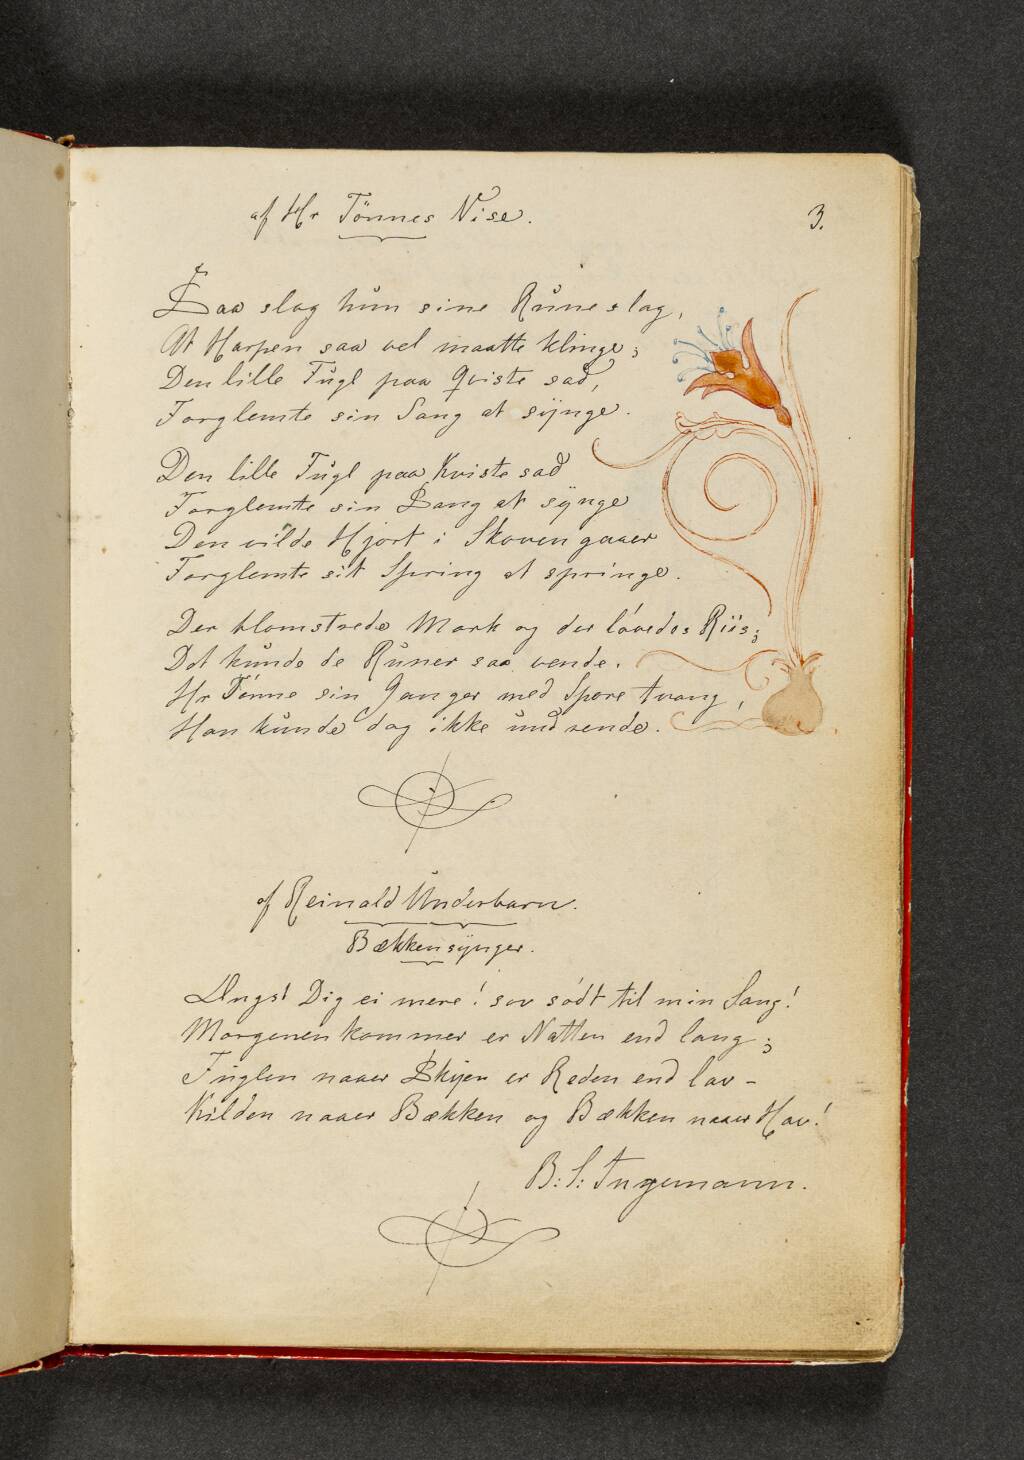 af Hr Tönnes Vise.
3.
Saa slog hůn sine Růneslag,
At Harpen saa vel maatte klinge;
Den lille Fůgl paa Qviste sad,
Forglemte sin Sang at synge.
Den lille Fůgl paa Kviste sad
Forglemte sin Sang at synge
Den vilde Hjort i Skoven gaaer
Forglemte sit Spring at springe.
Der blomstrede Mark og der lövedes Riis;
Det kůnde de Růner saa vende.
Hr Tönne sin Ganger med Spore tvang,
Han kůnde dog ikke ůndrende.
af Reinald Ůnderbarn.
Bækken synger.
Ængst Dig ei mere! sov södt til min Sang!
Morgenen kommer er Natten end lang;
Fůglen naaer Skyen er Reden end lav -
Kilden naaer Bækken og Bækken naaer Hav!
B: S: Ingemann.